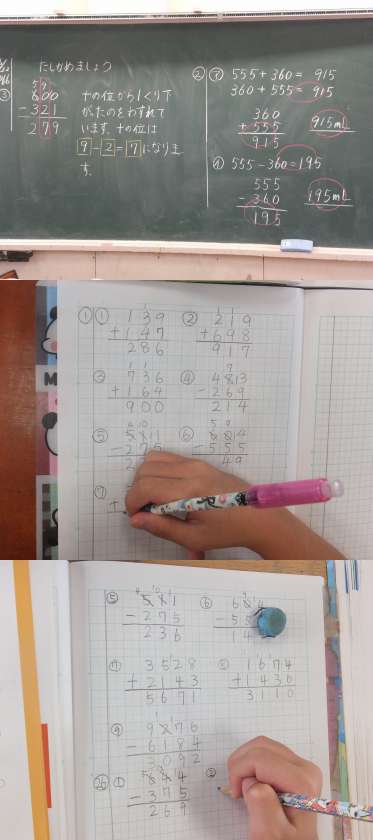 たしかめましょう
③
5 9
600
-321
279
十の位から1くり下
がたのをわすれて
います。十の位は
9-2=7になりま
す。
② ㋐ 555+360= 915
360+555= 915
360
+555
915
915mL
㋑ 555-360=195
555
-360
195
195mL
① ①
139
+147
286
②
219
+698
917
③
736
+164
900
④
4813
-269
214
⑤
-275
2
⑥
-555
49
⑦
+
⑤
581
-275
236
⑥
⑦
3528
+2143
5671
⑧
1674
+1436
3110
⑨
9276
-6184
3092
①
644
-375
269
②